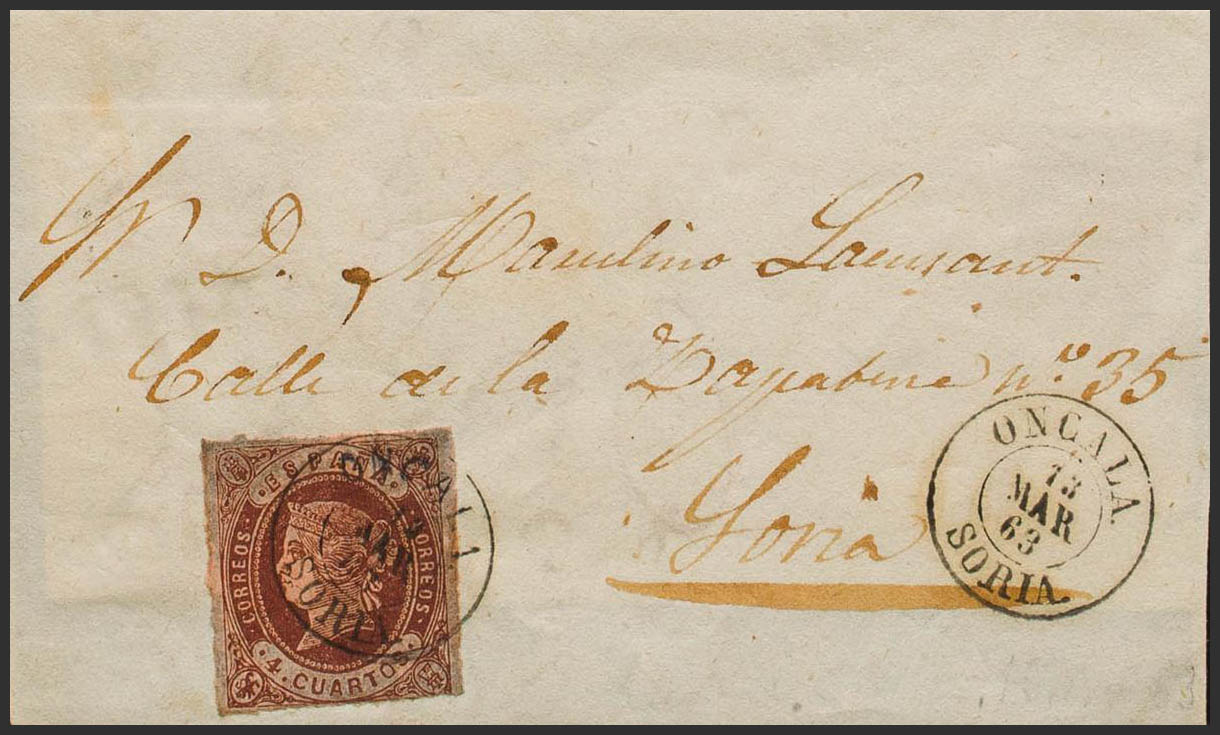 Sr D. Marcelino
Calle de la nº. 35
Soria
ONCALA
13
MAR
63
SORIA
ESPAÑA
CORREOS
CORREOS
4. CUARTOS.
ONCALA
MAR
SORIA